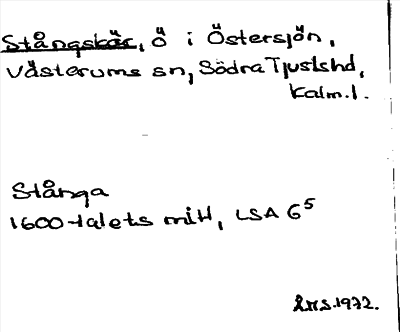 Stångskär, ö i Östersjön,
Västerums sn, Södra Tjusts hd,
Kalm. l.
Stånga
1600-talets mitt, LSA G5
1972.